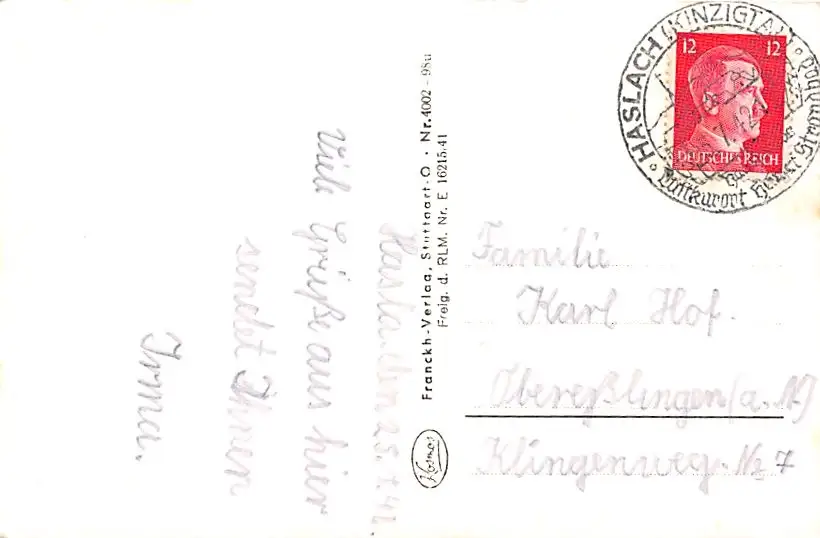 Hasla. den 25. 7. 42.
Viele Grüße aus hier
sendet Ihnen
Irma.
Franckh-Verlag, Stuttgart-O · Nr. 4002 - 98u
Freig. d. RLM. Nr. E 16215/41
Kosmos
HASLACH (KINZIGTAL)
Luftkurort
7.42
12 12
DEUTSCHES REICH
Familie
Karl Hof.
Obereßlingen (a. N)
Klingenweg. No 7